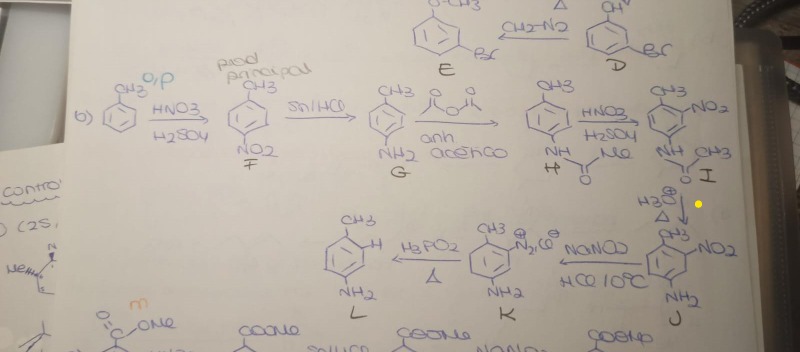 O-CH3
Δ
CH2-N2
OH
Br
Br
E
D
prod
principal
CH3 o,p
b)
HNO3
H2SO4
CH3
NO2
F
Sn/HCl
CH3
NH2
G
O O
O
anh
acético
CH3
NH
Me
O
H
HNO3
H2SO4
CH3
NO2
NH
CH3
O
I
H3O⊕
Δ
CH3
NO2
NH2
J
NaNO2
HCl 10°C
CH3
⊕
N2, Cl⊖
NH2
K
H3PO2
Δ
CH3
H
NH2
L
contro
) (2S,
N
Me
m
O
OMe
COOMe
Sn/HCl
COOMe
NaNO2
COOMe